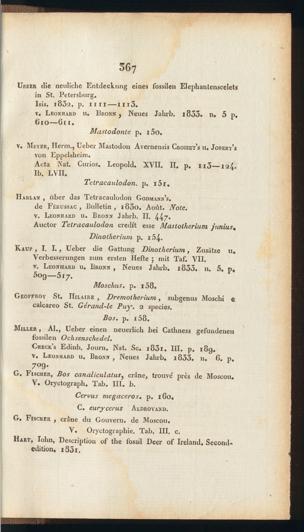 367
UEBER die neuliche Entdeckung eines fossilen Elephantenscelets
in St. Petersburg.
Isis. 1832. p. 1111—1113.
v. LEONHARD u. BRONN, Neues Jahrb. 1833. n. 5 p.
610—611.
Mastodonte p. 150.
v. MEYER, Herm., Ueber Mastodon Avernensis CROISET's u. JOBERT's
von Eppelsheim.
Acta Nat. Curios. Leopold. XVII. II. p. 113—124.
Ib. LVII.
Tetracaulodon. p. 151.
HARLAN, über das Tetracaulodon GODMANN's.
de FERUSSAC, Bulletin, 1830. Août. Note.
v. LEONHARD u. BRONN Jahrb. II. 447.
Auctor Tetracaulodon credit esse Mastotherium junius.
Dinotherium p. 154.
KAUP, I. I., Ueber die Gattung Dinotherium, Zusätze u.
Verbesserungen zum ersten Hefte; mit Taf. VII.
v. LEONHARD u. BRONN, Neues Jahrb. 1833. n. 5. p.
509—517.
Moschus. p. 158.
GEOFFROY St. HILAIRE, Dremotherium, subgenus Moschi e
calcareo St. Gérand-le Puy. 2 species.
Bos. p. 158.
MILLER, Al., Ueber einen neuerlich bei Cathness gefundenen
fossilen Ochsenschedel.
CHECK's Edinb. Journ. Nat. Sc. 1831. III. p. 189.
v. LEONHARD u. BRONN, Neues Jahrb. 1833. n. 6. p.
709.
G. FISCHER, Bos canaliculatus, crâne, trouvé près de Moscou.
V. Oryctograph. Tab. III. b.
Cervus megaceros. p. 160.
C. eurycerus ALDROVAND.
G. FISCHER, crâne du Gouvern. de Moscou.
V. Oryctographie. Tab. III. c.
HART, Iohn, Description of the fossil Deer of Ireland. Second-
edition. 1831.